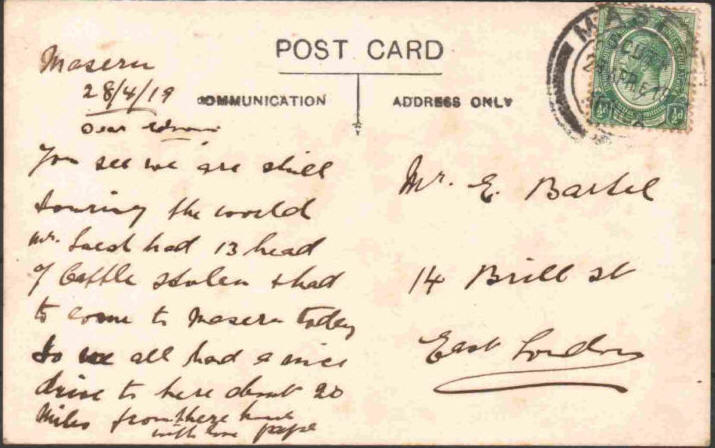 POST CARD
COMMUNICATION
ADDRESS ONLY
Maseru
28/4/19
Dear
You see we are still
touring the world
Mr. had 13 head
of Cattle stolen & had
to come to Maseru today
So we all had a nice
drive to here about 20
Miles from there
with love papa
Mr. E. Bartel
14 Brill st
East London
MASE
½d